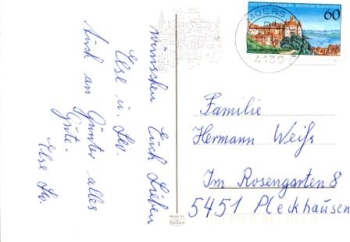 wünschen Euch Lieben
Else u.
Auch an Günter alles
Gute.
Else
MOERS
4130
60
Familie
Hermann Weiß
Im Rosengarten 8
5451 Pleckhausen